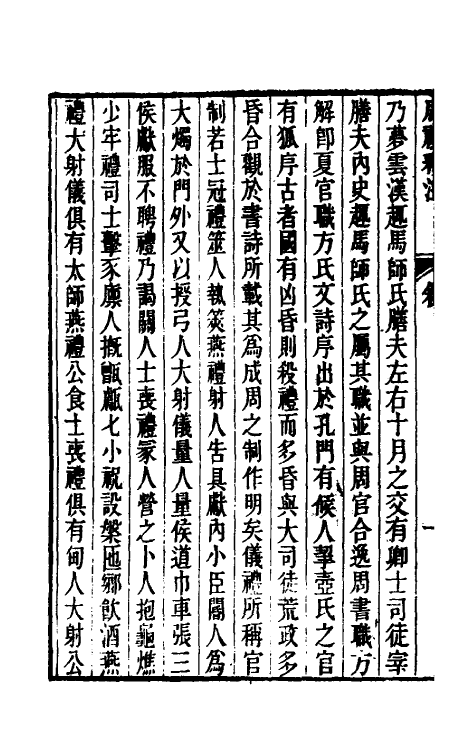 乃夢雲漢趣馬師氏膳夫左右十月之交有卿士司徒宰
膳夫內史趣馬師氏之屬其職並與周官合逸周書職方
解卽夏官職方氏文詩序出於孔門有候人挈壺氏之官
有狐序古者國有凶昏則殺禮而多昏與大司徒荒政多
昏合觀於書詩所載其爲成周之制作明矣儀禮所稱官
制若士冠禮筮人執筴燕禮射人告具獻內小臣閽人爲
大燭於門外又以授弓人大射儀量人量侯道巾車張三
侯獻服不聘禮乃謁關人士喪禮冢人營之卜人抱龜燋
少牢禮司士擊豕廩人摡甑甗匕小祝設槃匜鄉飲酒燕
禮大射儀俱有太師燕禮公食士喪禮俱有甸人大射公